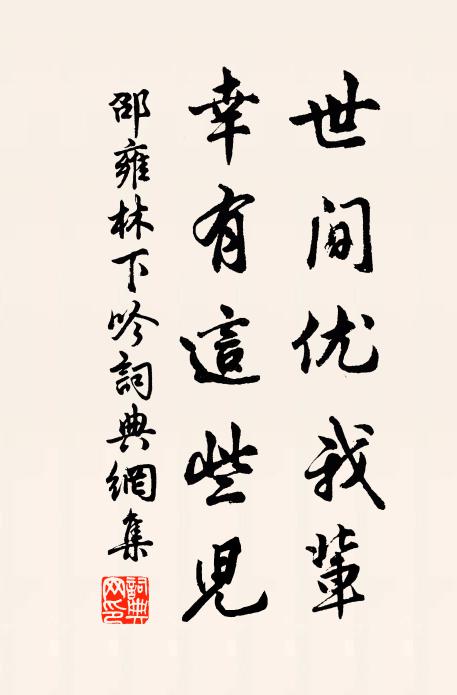 世间优我輩
幸有這些児
邵雍林下吟詞典網集
詞典网印